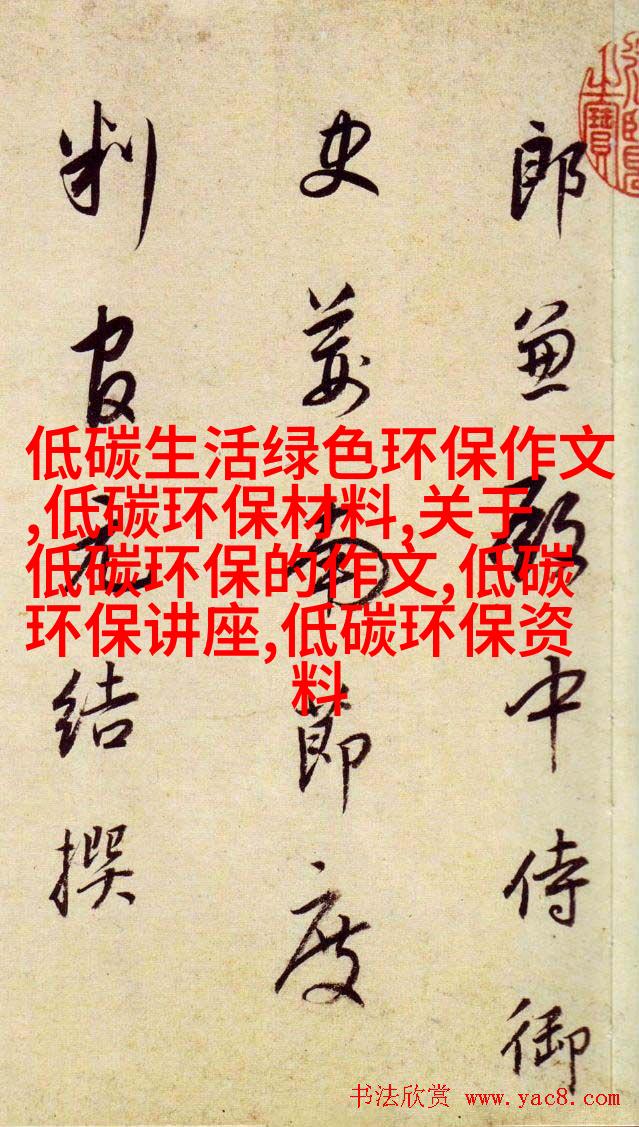 郎兼殿中侍御
史荊南節度
判官元結撰
低碳生活绿色环保作文
,低碳环保材料,关于
低碳环保的作文,低碳
环保讲座,低碳环保资
料
书法欣赏 www.yac8.com